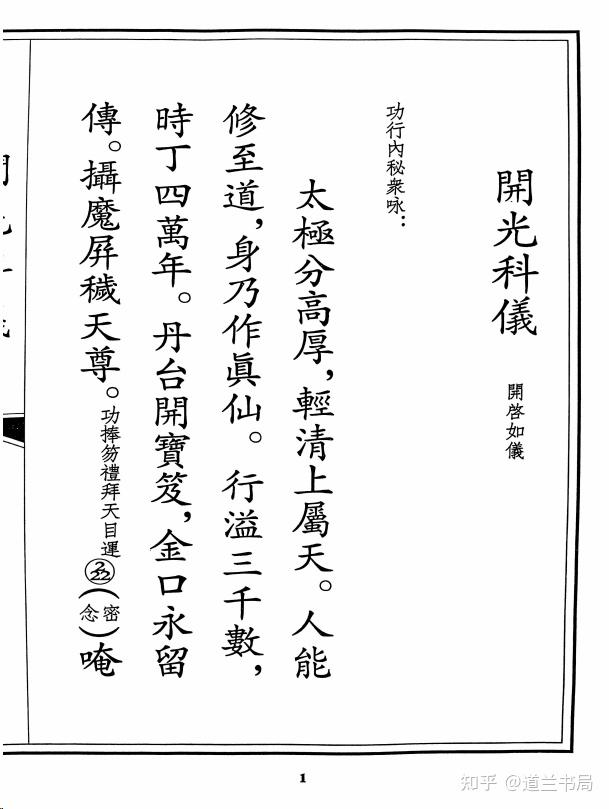 開光科儀 開啓如儀
功行內秘衆咏：
太極分高厚，輕清上屬天。人能
修至道，身乃作眞仙。行溢三千數，
時丁四萬年。丹台開寶笈，金口永留
傳。攝魔屏穢天尊。功捧笏禮拜天目運（密念）唵
1
知乎 @道兰书局